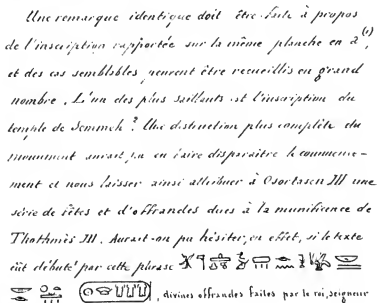 Une remarque identique doit être faite à propos
de l'inscription rapportée sur la même planche en a (1),
et des cas semblables peuvent être recueillis en grand
nombre. L'un des plus saillants est l'inscription du
temple de Semneh? Une distinction plus complète du
monument aurait pu en faire disparaître le commence-
ment et nous laisser ainsi attribuer à Osortasen III une
série de fêtes et d'offrandes dues à la munificence de
Thothmès III. Aurait-on pu hésiter, en effet, si le texte
eût débuté par cette phrase
, divines offrandes faites par le roi, seigneur